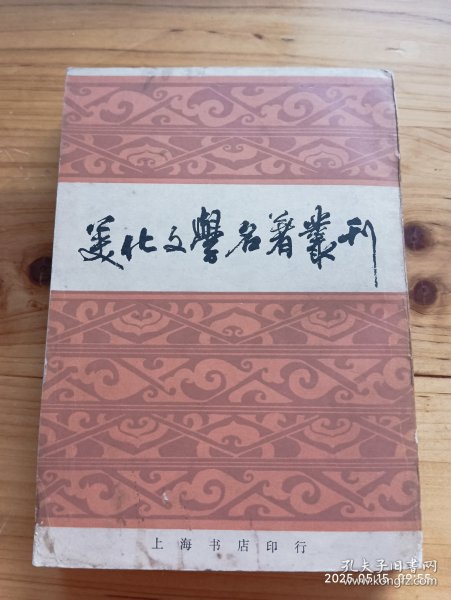 美化文學名著叢刊
上海书店印行
孔夫子旧书网
www.kongfz.com
2025.05.15 09:55